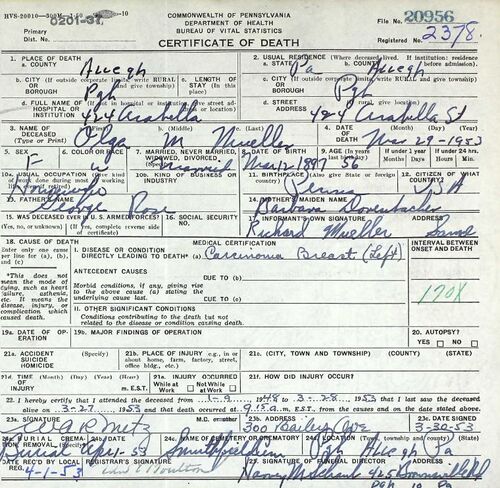 HVS-20011-300M-10
0201-37
Primary
Dist. No.
COMMONWEALTH OF PENNSYLVANIA
DEPARTMENT OF HEALTH
BUREAU OF VITAL STATISTICS
CERTIFICATE OF DEATH
File No. 20956
Registered No. 2378
1. PLACE OF DEATH
a. COUNTY Allegh
2. USUAL RESIDENCE (Where deceased lived. If institution: residence before admission).
a. STATE Pa b. COUNTY Allegh
b. CITY (If outside corporate limits, write RURAL and give township) OR TOWN Pgh
c. LENGTH OF STAY (in this place)
c. CITY (If outside corporate limits, write RURAL and give township) OR TOWN Pgh
d. FULL NAME OF (If not in hospital or institution, give street address) HOSPITAL OR INSTITUTION 424 Arabella
d. STREET ADDRESS (If rural, give location) 424 Arabella St
3. NAME OF DECEASED (Type or Print) a. (First) Olga b. (Middle) M c. (Last) Mueller
4. DATE OF DEATH (Month) (Day) (Year) Mar 28 1953
5. SEX F
6. COLOR OR RACE W
7. MARRIED, NEVER MARRIED, WIDOWED, DIVORCED (Specify) Married
8. DATE OF BIRTH Mar 12 1897
9. AGE (In years last birthday) 56 If under 1 year If under 24 hrs.
10a. USUAL OCCUPATION (Give kind of work done during most of working life, even if retired) Housewife
10b. KIND OF BUSINESS OR INDUSTRY
11. BIRTHPLACE (State or foreign country) Penna
12. CITIZEN OF WHAT COUNTRY? USA
13. FATHER'S NAME George Rose
14. MOTHER'S MAIDEN NAME Barbara
15. WAS DECEASED EVER IN U. S. ARMED FORCES?
(Yes, no, or unknown) (If yes, complete reverse side of certificate)
16. SOCIAL SECURITY NO.
17. INFORMANT'S OWN SIGNATURE Richard Mueller ADDRESS Same
18. CAUSE OF DEATH
Enter only one cause per line for (a), (b), and (c)
MEDICAL CERTIFICATION
INTERVAL BETWEEN ONSET AND DEATH
I. DISEASE OR CONDITION
DIRECTLY LEADING TO DEATH* (a) Carcinoma Breast (Left)
*This does not mean the mode of dying, such as heart failure, asthenia, etc. It means the disease, injury, or complication which caused death.
ANTECEDENT CAUSES
Morbid conditions, if any, giving rise to the above cause (a) stating the underlying cause last.
DUE TO (b)
DUE TO (c)
170X
II. OTHER SIGNIFICANT CONDITIONS
Conditions contributing to the death but not related to the disease or condition causing death.
19a. DATE OF OPERATION
19b. MAJOR FINDINGS OF OPERATION
20. AUTOPSY?
YES NO
21a. ACCIDENT SUICIDE HOMICIDE (Specify)
21b. PLACE OF INJURY (e.g., in or about home, farm, factory, street, office bldg., etc.)
21c. (CITY, TOWN AND TOWNSHIP) (COUNTY) (STATE)
21d. TIME OF INJURY (Month) (Day) (Year) (Hour) m. E.S.T.
21e. INJURY OCCURRED While at Work Not While at Work
21f. HOW DID INJURY OCCUR?
22. I hereby certify that I attended the deceased from 1-9 1948 to 3-28 1953 that I last saw the deceased
alive on 3-27 1953 and that death occurred at 9:15 a.m. E.S.T., from the causes and on the date stated above.
23a. SIGNATURE M.D. or other
23b. ADDRESS 300 Bailey Ave
23c. DATE SIGNED 3-30-53
24a. BURIAL, CREMATION, REMOVAL Burial
24b. DATE
24c. NAME OF CEMETERY OR CREMATORY Smithfield
24d. LOCATION (City, town, township and county) (State) Pgh Allegh Pa
DATE REC'D BY LOCAL REG. 4-1-53
25. SIGNATURE OF FUNERAL DIRECTOR ADDRESS
Pgh 10 Pa